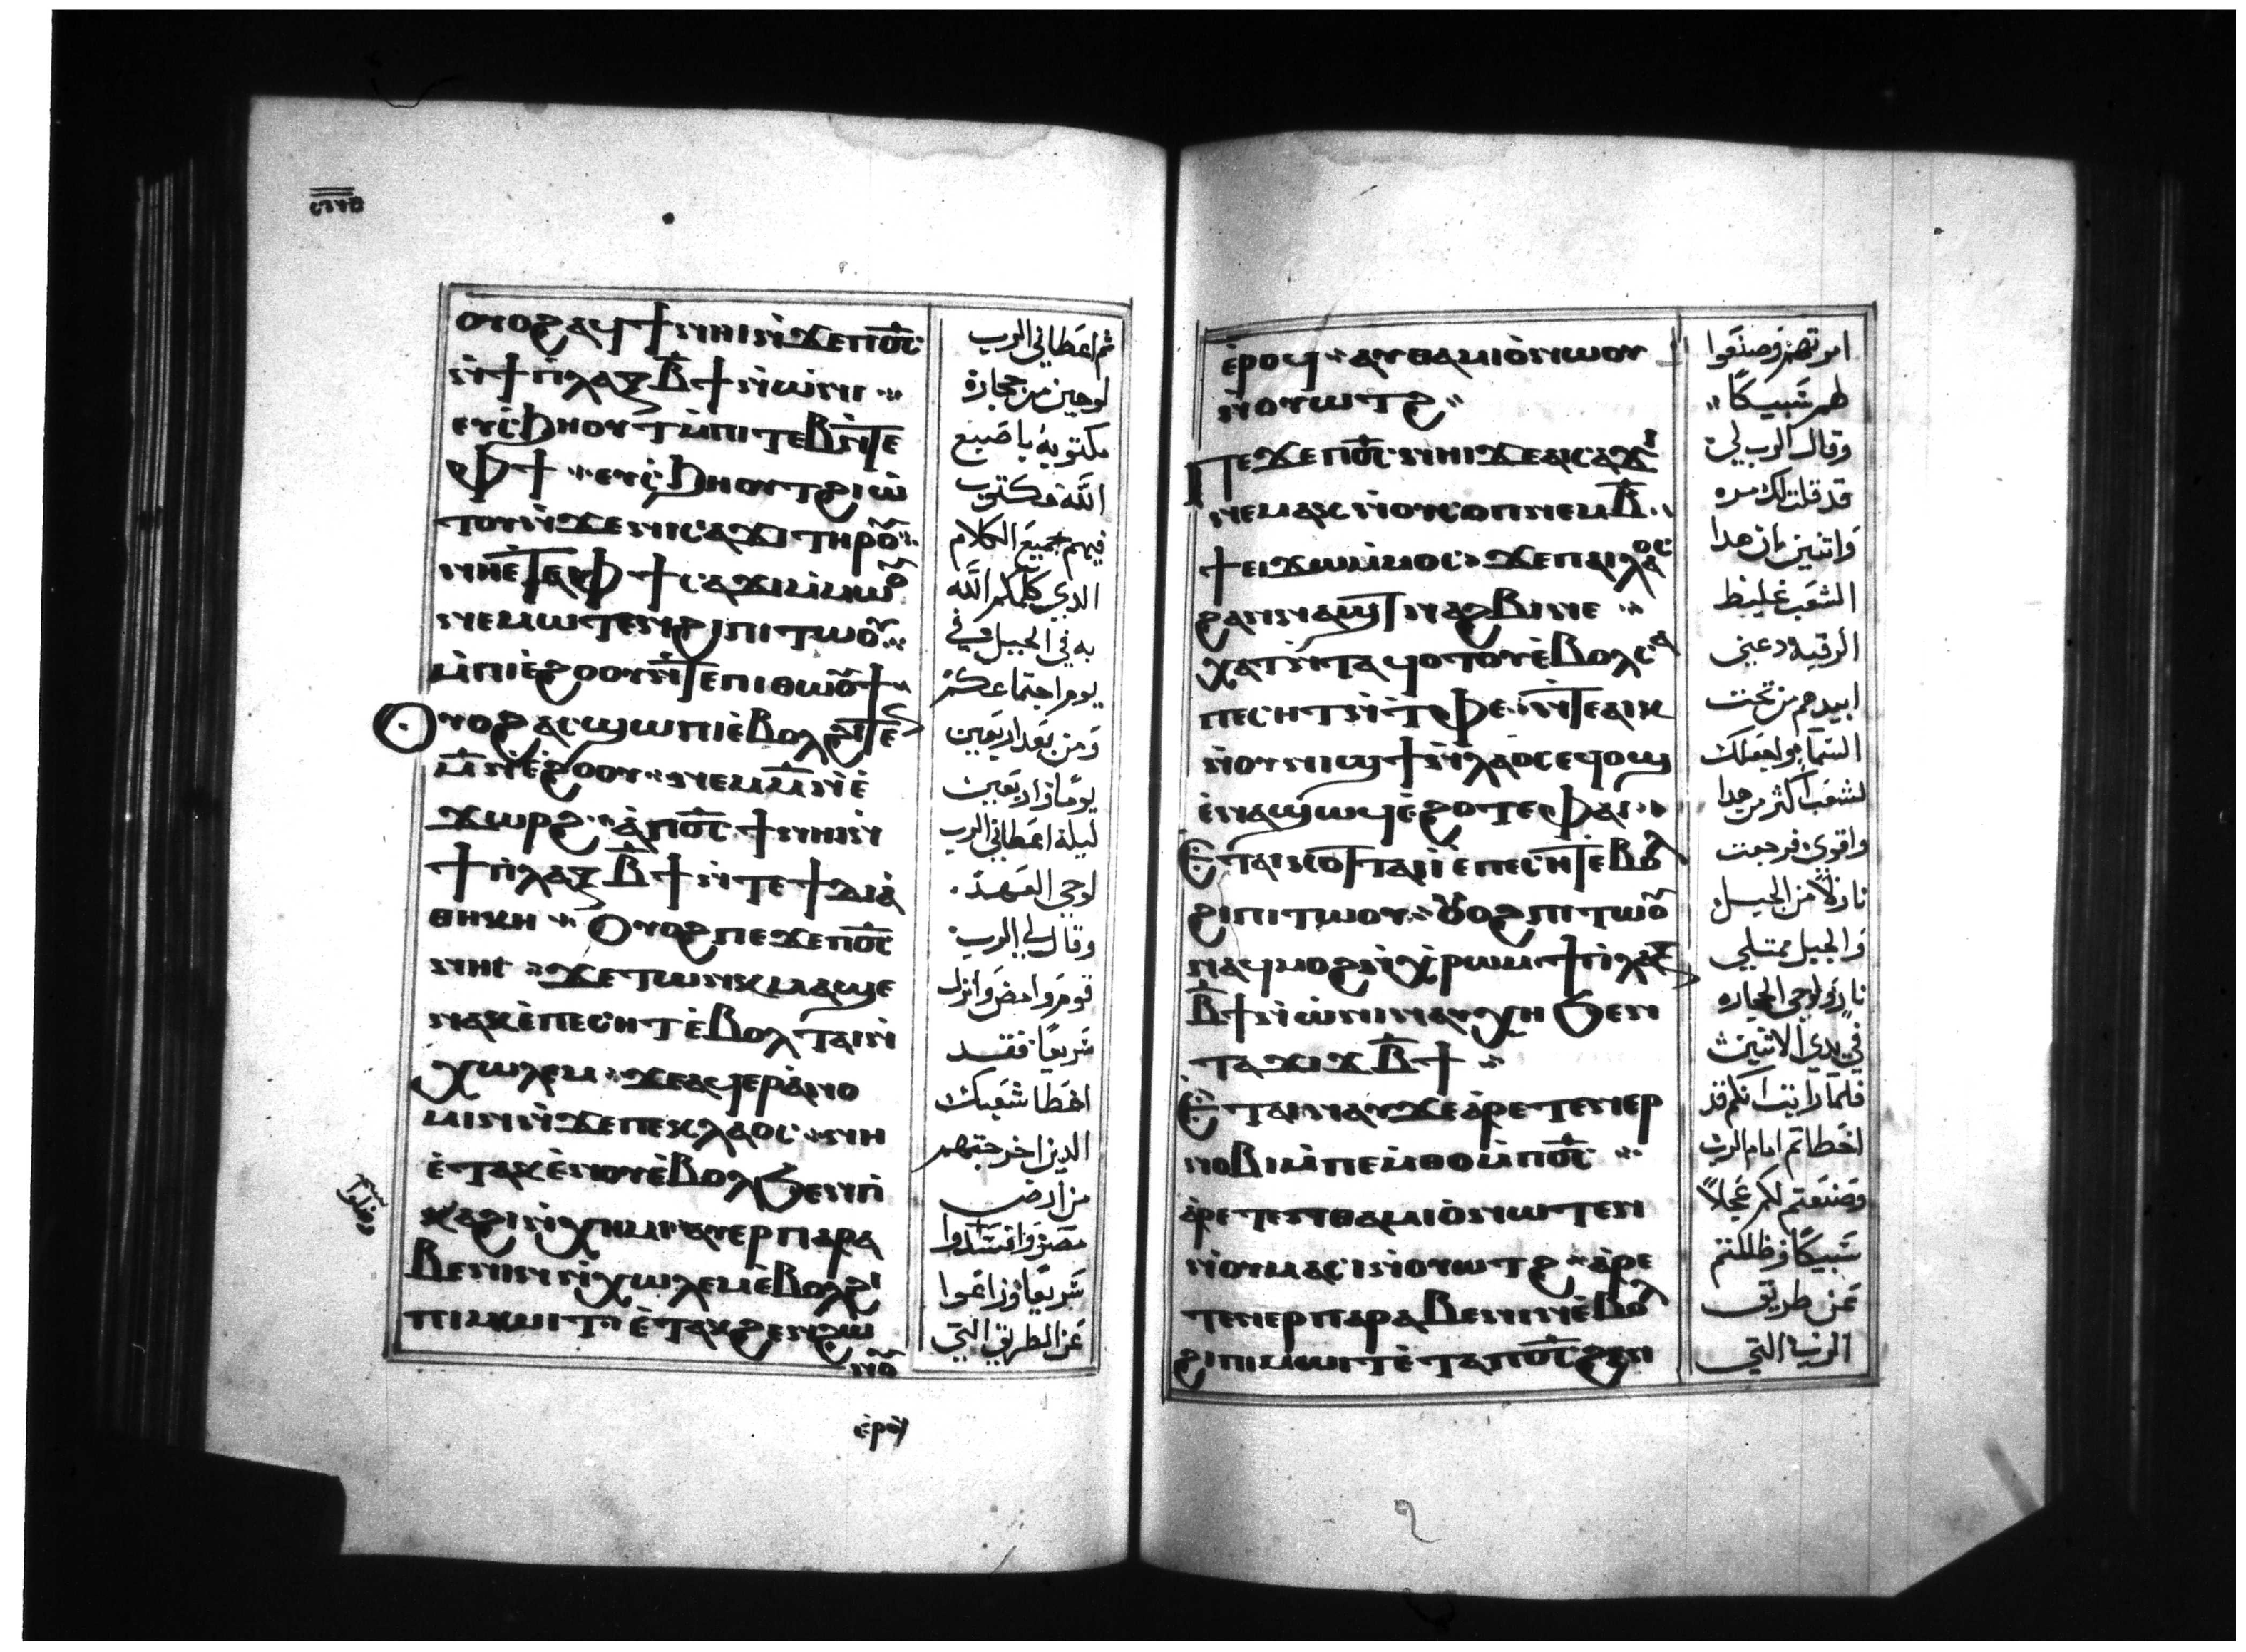 ⲟⲩⲟϩ ⲁϥϯ ⲛⲏⲓ ⲛ̀ϫⲉ ⲡϭⲥ
ⲛ̀ϯⲡⲗⲁⲝ ⲃ̄ϯ ⲛ̀ⲱ̀ⲛⲓ
ⲉⲩⲥ̀ϧⲏⲟⲩⲧ ⲙ̀ⲡⲓⲧⲉⲃ ⲛ̀ⲧⲉ
ⲫϯ ⲉⲩⲥ̀ϧⲏⲟⲩⲧ ϩⲓⲱ̀
ⲧⲟⲩ ⲛ̀ϫⲉ ⲛⲓⲥⲁϫⲓ ⲧⲏⲣⲟⲩ
ⲛⲏⲉ̀ⲧⲉ ⲫϯ ⲥⲁϫⲓ ⲙ̀ⲙⲱⲟⲩ
ⲛⲉⲙⲱⲧⲉⲛ ϩⲓ ⲡⲓⲧⲱⲟⲩ
ⲙ̀ⲡⲓⲉ̀ϩⲟⲟⲩ ⲛ̀ⲧⲉ ⲡⲓⲑⲱⲟⲩϯ
Ⲟⲩⲟϩ ⲁⲥϣⲱⲡⲓ ⲉ̀ⲃⲟⲗ ϩⲓⲧⲉⲛ
ⲙ̄ ⲛ̀ⲉ̀ϩⲟⲟⲩ ⲛⲉⲙ ⲙ̄ ⲛ̀ⲉ̀
ϫⲱⲣϩ ⲁ̀ ⲡϭⲥ ϯ ⲛⲏⲓ ⲛ̀
ϯⲡⲗⲁⲝ ⲃ̄ϯ ⲛ̀ⲧⲉ ϯⲇⲓⲁ̀
ⲑⲏⲕⲏ Ⲟⲩⲟϩ ⲡⲉϫⲉ ⲡϭⲥ
ⲛⲏⲓ ϫⲉ ⲧⲱⲛⲕ ⲙⲁϣⲉ
ⲛⲁⲕ ⲉ̀ⲡⲉⲥⲏⲧ ⲉ̀ⲃⲟⲗ ⲧⲁⲓ ⲛ̀
ⲭⲱⲗⲉⲙ ϫⲉ ⲁϥⲉⲣⲁ̀ⲛⲟ
ⲙⲓⲛ ⲛ̀ϫⲉ ⲡⲉⲕⲗⲁⲟⲥ ⲛⲏ
ⲉ̀ⲧⲁⲕⲉ̀ⲛⲟⲩ ⲉ̀ⲃⲟⲗ ϧⲉⲛ ⲡ̀
ⲕⲁϩⲓ ⲛ̀ⲭⲏⲙⲓ ⲁⲩⲉⲣⲡⲁⲣⲁ
ⲃⲉⲛⲓⲛ ⲛ̀ⲭⲱⲗⲉⲙ ⲉ̀ⲃⲟⲗ ϩⲓ
ⲡⲓⲙⲱⲓⲧ ⲉ̀ⲧⲁⲕϩⲉⲛϩⲱ
ⲛⲟⲩ
ⲉ̀ⲣⲟϥ
ثم اعطاني الرب
لوحين من حجارة
مكتوبة باصبع
الله مكتوب
فيهم جميع الكلام
الدي كلمكم الله
به في الجبل في
يوم اجتماعكم
ومن بعد اربعين
يومًا واربعين
ليلة اعطاني الرب
لوحي العهد
وقال لي الرب
قوم وامض وانزل
سريعًا فقد
اخطا شعبك
الدين اخرجتهم
من ارض
مصر وافسدوا
سريعًا وزاغوا
عن الطريق التي
ⲉ̀ⲣⲟϥ ⲁⲩⲑⲁⲙⲓⲟ̀ ⲛⲱⲟⲩ
ⲛ̀ⲟⲩⲱⲧϩ
Ⲡⲉϫⲉ ⲡϭⲥ ⲛⲏⲓ ϫⲉ ⲁⲓⲥⲁϫⲓ
ⲛⲉⲙⲁⲕ ⲛ̀ⲟⲩⲥⲟⲡ ⲛⲉⲙ ⲃ̄
ϯ ⲉⲓϫⲱ ⲙ̀ⲙⲟⲥ ϫⲉ ⲡⲁⲓⲗⲁⲟⲥ
ϩⲁⲛⲛⲁϣⲧ ⲛⲁϩⲃⲓ ⲛⲉ
ⲭⲁⲧ ⲛ̀ⲧⲁϥⲟⲧⲟⲩ ⲉ̀ⲃⲟⲗ ⲥⲁ
ⲡⲉⲥⲏⲧ ⲛ̀ⲧⲫⲉ ⲛ̀ⲧⲉ ⲁⲓⲕ
ⲛ̀ⲟⲩⲛⲓϣϯ ⲛ̀ⲗⲁⲟⲥ ⲉϥⲟϣ
ⲉⲛⲁϣⲱϥ ⲉ̀ϩⲟⲧⲉ ⲫⲁⲓ
Ⲉⲧⲁⲓⲕⲟⲧ ⲧⲁⲓ̀ ⲉ̀ⲡⲉⲥⲏⲧ ⲉⲃⲟⲗ
ϩⲓ ⲡⲓⲧⲱⲟⲩ ⲟⲩⲟϩ ⲡⲓⲧⲱⲟⲩ
ⲛⲁϥⲙⲟϩ ⲛ̀ⲭ̀ⲣⲱⲙ ϯⲡⲗⲁⲝ
ⲃ̄ϯ ⲛ̀ⲱ̀ⲛⲓ ⲛⲁⲩⲭⲏ ϧⲉⲛ
ⲧⲁϫⲓϫ ⲃ̄ϯ
Ⲉⲧⲁⲓⲛⲁⲩ ϫⲉ ⲁ̀ⲣⲉⲧⲉⲛⲉⲣ
ⲛⲟⲃⲓ ⲙ̀ⲡⲉⲙⲑⲟ ⲙ̀ⲡϭⲥ
ⲁ̀ⲣⲉⲧⲉⲛⲑⲁⲙⲓⲟ̀ ⲛⲱⲧⲉⲛ
ⲛ̀ⲟⲩⲙⲁⲥⲓ ⲛ̀ⲟⲩⲱⲧϩ ⲁ̀ⲣⲉ
ⲧⲉⲛⲉⲣⲡⲁⲣⲁⲃⲉⲛⲓⲛ ⲉ̀ⲃⲟⲗ
ϩⲓ ⲡⲓⲙⲱⲓⲧ ⲉ̀ⲧⲁ ⲡϭⲥ ϩⲉⲛ
امرتهم وصنعوا
لهم سبيكًا
وقال الرب لي
قد قلت لك مره
واتنين بان هدا
الشعب غليظ
الرقبه دعني
ابيدهم من تحت
السما واجعلك
لشعب اكثر جدا
واقوي فرجعت
نازلاً من الجبل
والجبل ممتلي
نار ولوحي الحجاره
في يدي الاتنين
فلما رايت انكم قد
اخطاتم امام الرب
وصنعتم لكم عجلاً
سبيكًا وظللتم
عن طريق
الرب التي